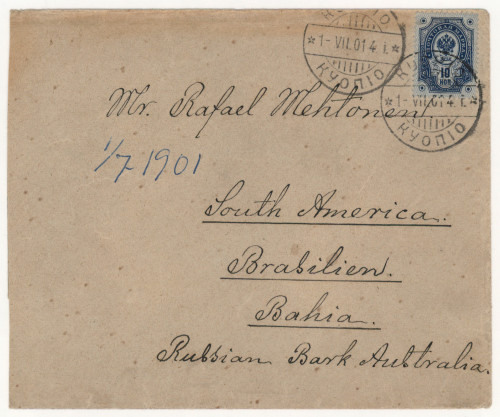 КУОПІО
1-VII.01 4 i.
10
КОП
КУОПІО
1-VII.01 4 i.
Mr. Rafael Mehtonen.
1/7 1901
South America.
Brasilien.
Bahia.
Russian Bark Australia.